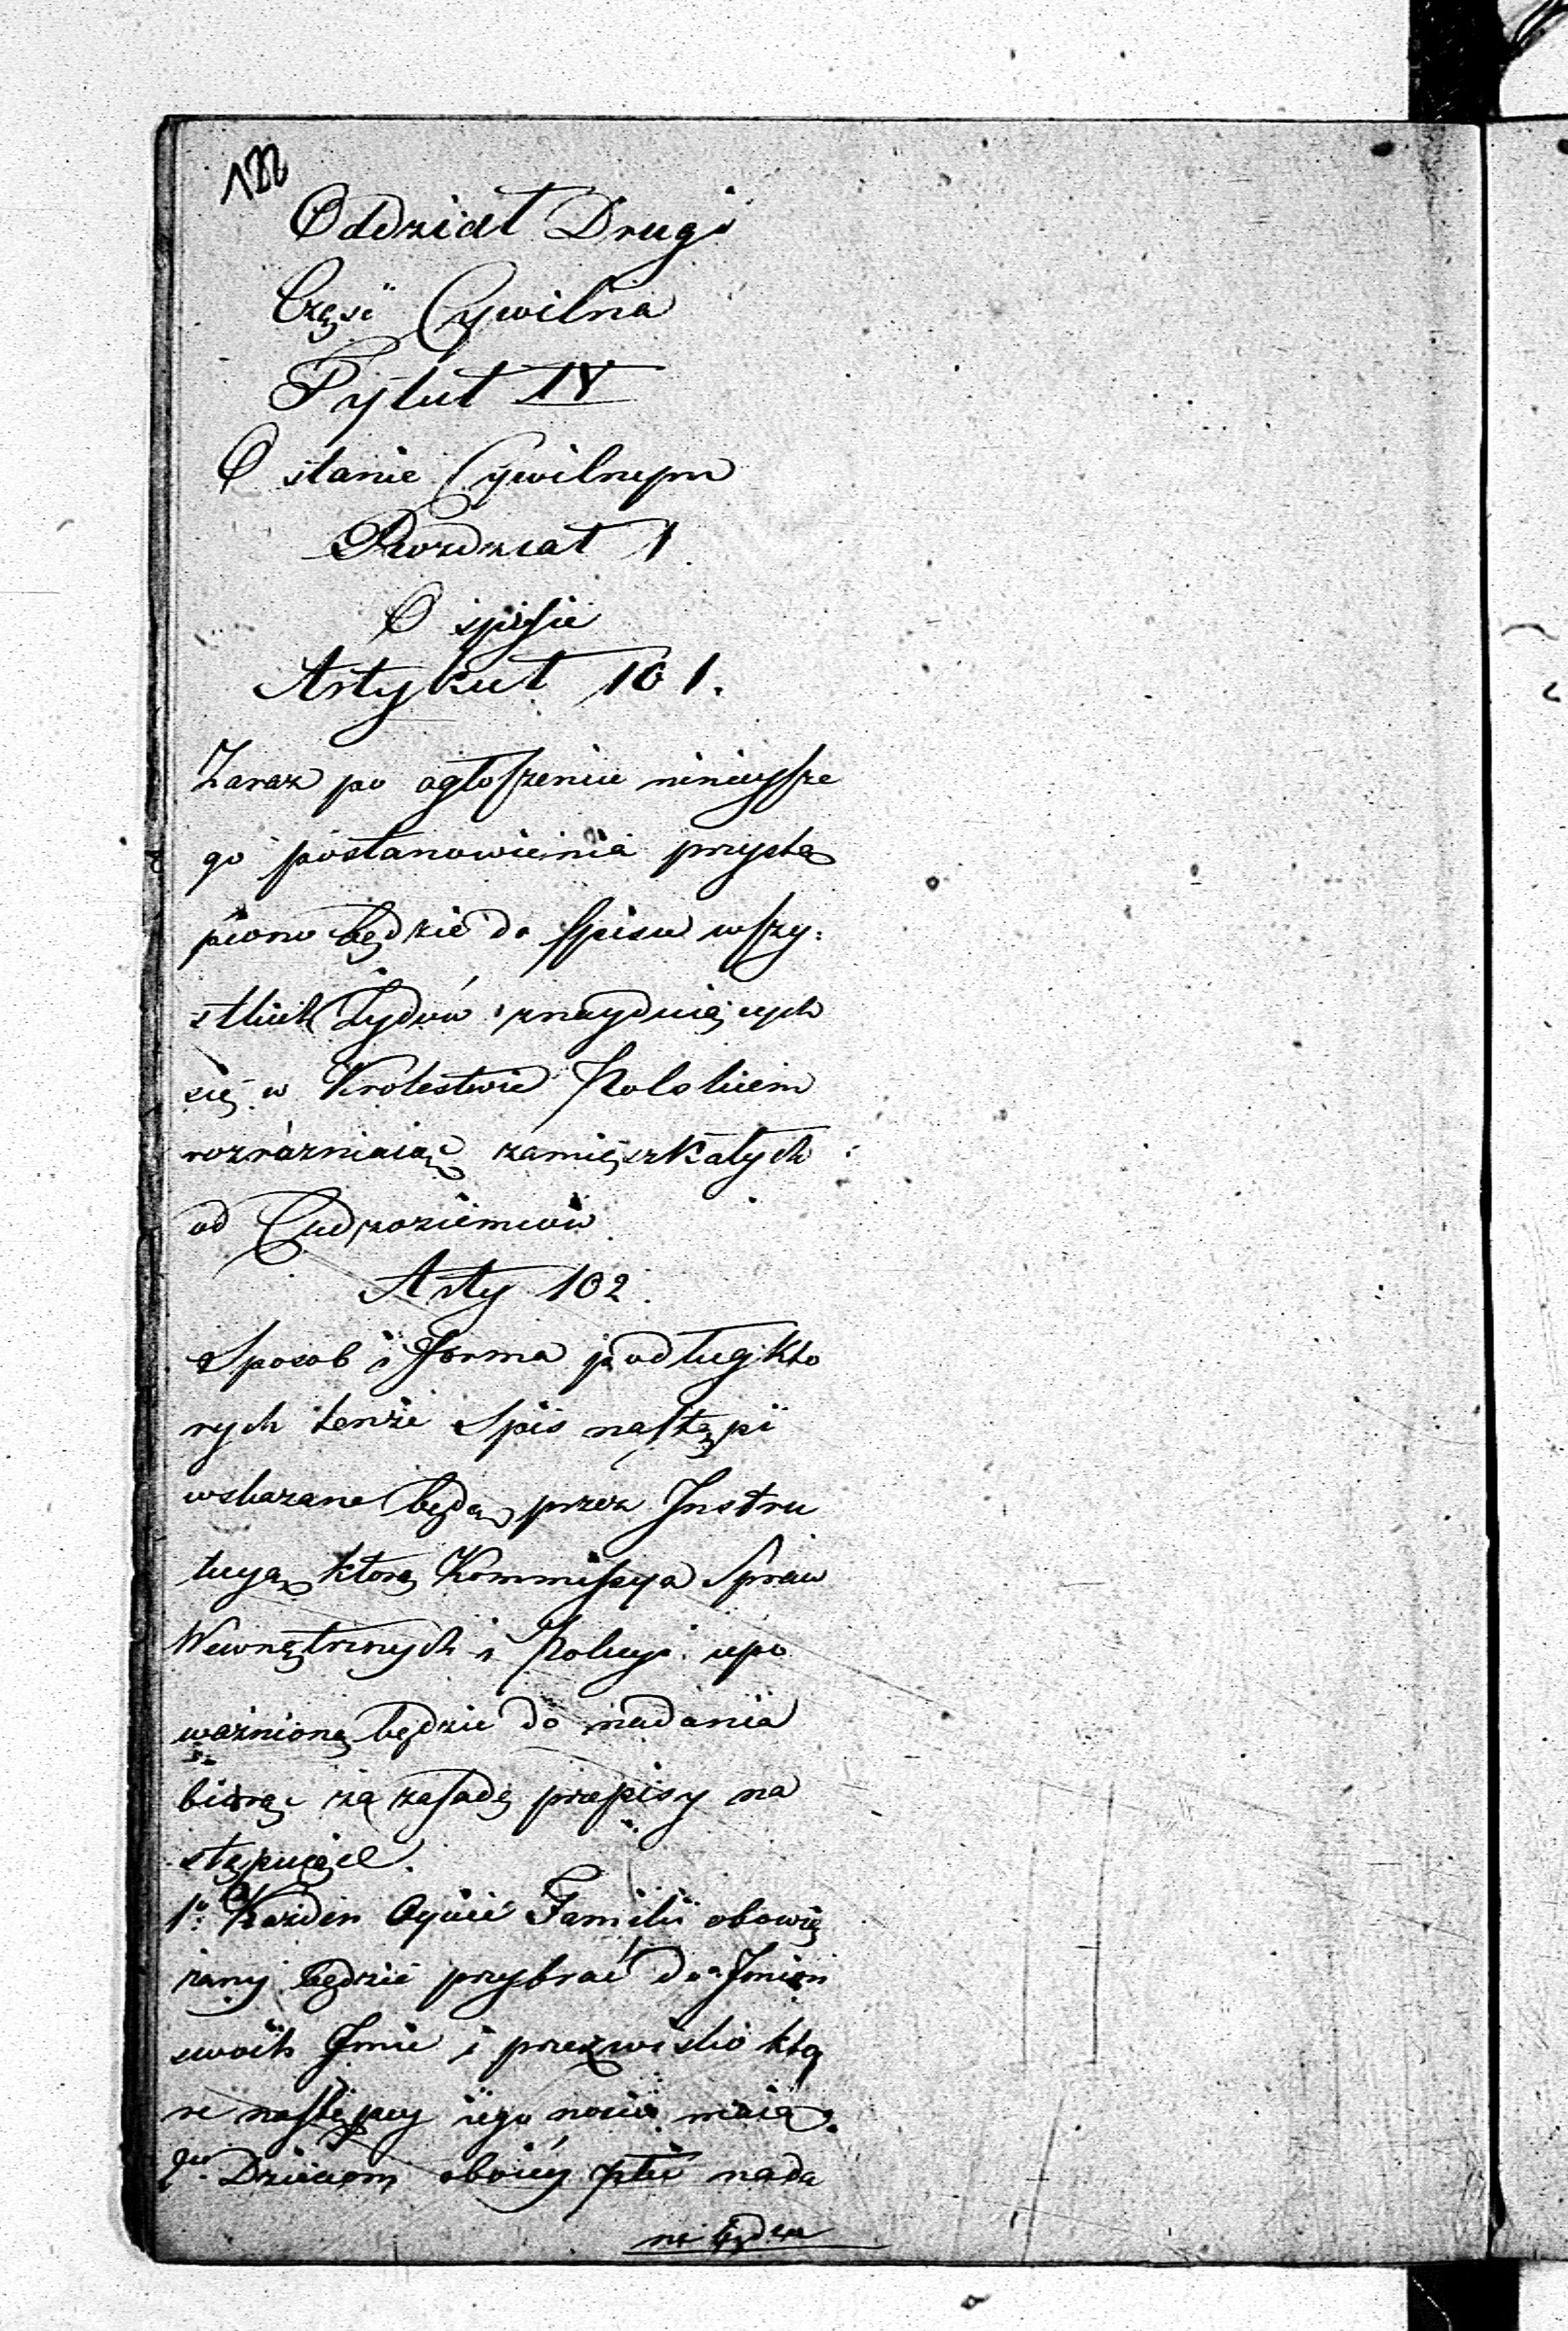 122
Oddział Drugi
Część Cywilna
Tytuł IV
O stanie Cywilnym
Rozdział 1
O spisie
Artykuł 101.
Zaraz po ogłoszeniu ninieysze
go postanowienia przystą
piono będzie do Spisu wszy:
stkich Żydów znayduiących
się w Krolestwie Polskiem
rozróżniaiąc zamięszkałych
od Cudzoziemców
Arty 102.
Sposob i Forma podług kto
rych tenże Spis nastąpi
wskazane będą przez Instru
kcyą którą Kommissya Spraw
Wewnętrznych i Policyi upo
ważnioną będzie do nadania
biorąc za zasadę przepisy na
stępuiące.
1o: Każden Oyciec Familii obowią
zany będzie przybrać do Imion
swoich Imie i przezwisko któ
re następcy iego nosić maią.
2o Dzieciom oboiey płci nada
ne będzie